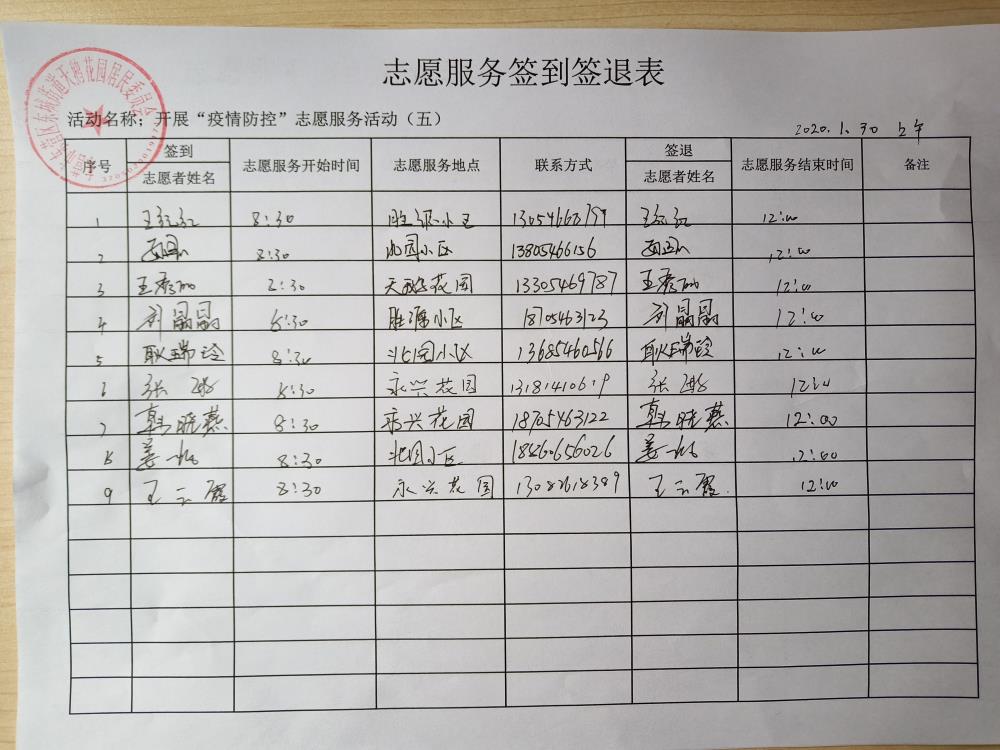 志愿服务签到签退表
活动名称：开展“疫情防控”志愿服务活动（五）
2020.1.30 上午
序号 签到 志愿者姓名 志愿服务开始时间 志愿服务地点 联系方式 签退 志愿者姓名 志愿服务结束时间 备注
1 8:30 12:00
2 8:30 小区 13805466156 12:00
3 王秀丽 8:30 天鹅花园 13305469787 王秀丽 12:00
4 刘晶晶 8:30 胜源小区 18705463123 刘晶晶 12:00
5 耿瑞玲 8:30 北园小区 13685460566 耿瑞玲 12:00
6 张 8:30 永兴花园 13181410619 张 12:00
7 韩晓燕 8:30 永兴花园 18705463122 韩晓燕 12:00
8 姜 8:30 北园小区 18560656026 姜 12:00
9 王云霞 8:30 永兴花园 王云霞 12:00